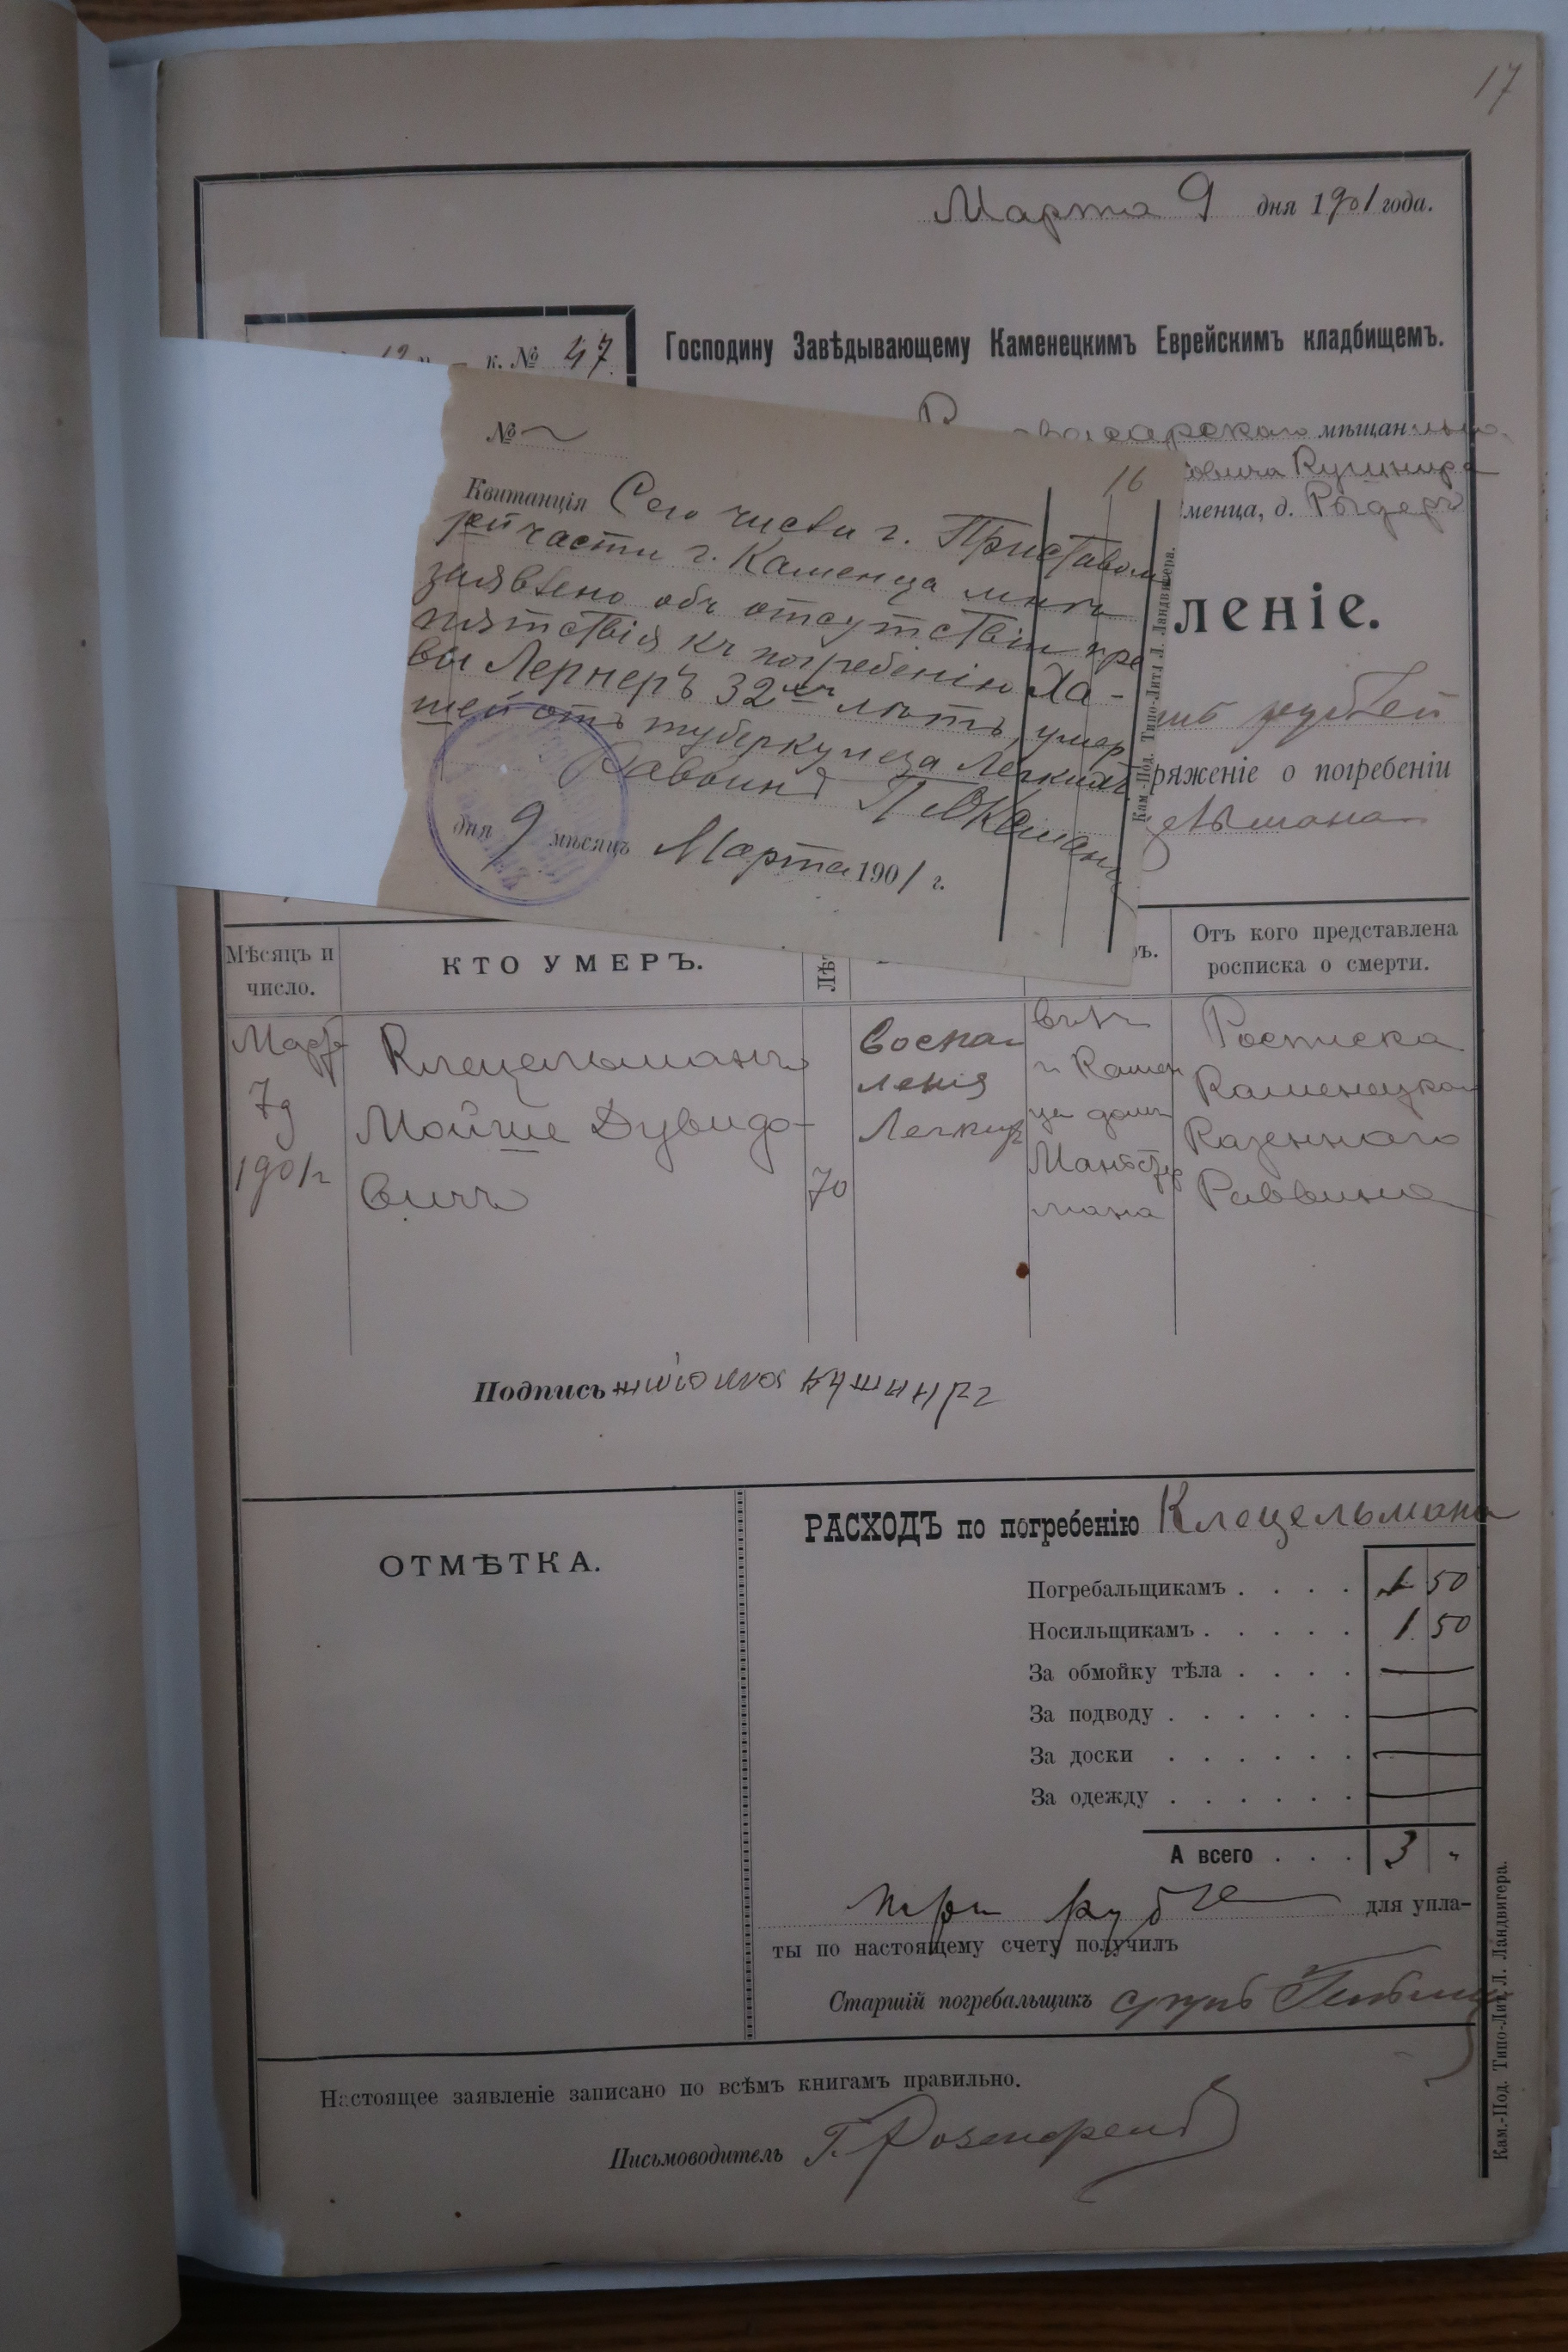 17
Марта 9 дня 1901 года.
к. № 47
Господину Завѣдывающему Каменецкимъ Еврейскимъ кладбищемъ.
мѣщан
овича Кушнира
менца, д.
леніе.
рублей
ряженіе о погребеніи
ельмана
16
№ ~
Квитанція Сего числа г. Приставом
1ей части г. Каменца мнѣ
заявлено объ отсутствіи пре
пятствія къ погребенію Ха-
вы Лернеръ 32хъ лѣтъ, умер
шей отъ туберкулеза легкихъ.
Раввинъ
дня 9 мѣсяцъ Марта 1901 г.
Кам.-Под. Типо-Лит. Л. Ландвигера.
Мѣсяцъ и число.
КТО УМЕРЪ.
Лѣт
ъ.
Отъ кого представлена росписка о смерти.
Март
7д
1901г
Клецельманъ
Мойше Дувидо-
вичъ
70
Воспа
ленія
Легких
въ
г. Камен
ца домъ
мана
Росписка
Каменецкаго
Казеннаго
Раввина
Подпись
ОТМѢТКА.
РАСХОДЪ по погребенію Клецельмана
Погребальщикамъ . . . . 1 50
Носильщикамъ . . . . . 1 50
За обмойку тѣла . . . . —
За подводу . . . . . . —
За доски . . . . . . —
За одежду . . . . . . —
А всего . . . 3 "
три рубле для упла-
ты по настоящему счету получилъ
Старшій погребальщикъ
Настоящее заявленіе записано по всѣмъ книгамъ правильно.
Письмоводитель Г.
Кам.-Под. Типо-Лит. Л. Ландвигера.